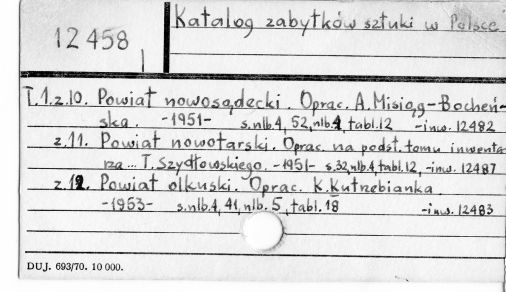 12458
Katalog zabytków sztuki w Polsce
T.1.z.10. Powiat nowosądecki. Oprac. A.Misiąg-Bocheń-
ska. -1951- s.nlb.4, 52, nlb.4, tabl.12 -inw. 12482
z.11. Powiat nowotarski. Oprac. na podst. tomu inwenta
rza... T.Szydłowskiego. -1951- s.32, nlb.4, tabl.12, -inw. 12487
z.12. Powiat olkuski. Oprac. K.Kutrzebianka
-1953- s.nlb.4, 41, nlb.5, tabl.18 -inw. 12483
DUJ. 693/70. 10 000.